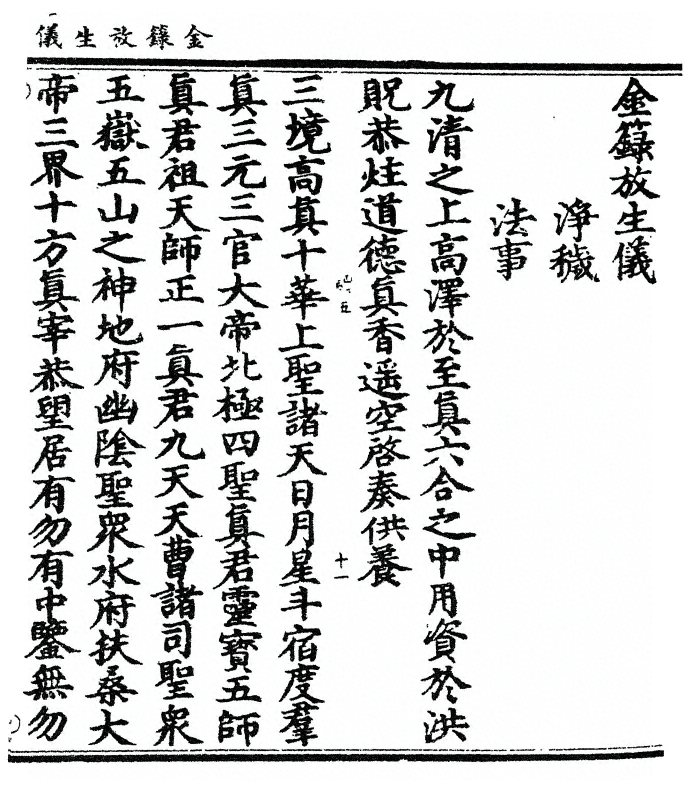 金籙放生儀
金籙放生儀
淨穢
法事
九清之上高澤於至眞六合之中用資於洪
貺恭炷道德眞香遥空啓奏供養
三境高眞十華上聖諸天日月星斗宿度羣
眞三元三官大帝北極四聖眞君靈寳五師
眞君祖天師正一眞君九天天曹諸司聖衆
五嶽五山之神地府幽陰聖衆水府扶桑大
帝三界十方眞宰恭望居有勿有中鑒無勿
十一